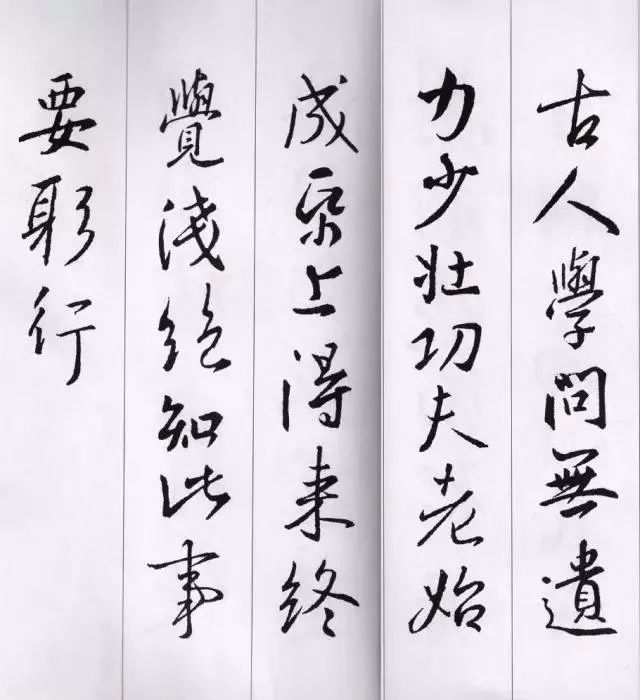 古人學問無遺
力少壮功夫老始
成帋上得来終
覺淺絶知此事
要躬行